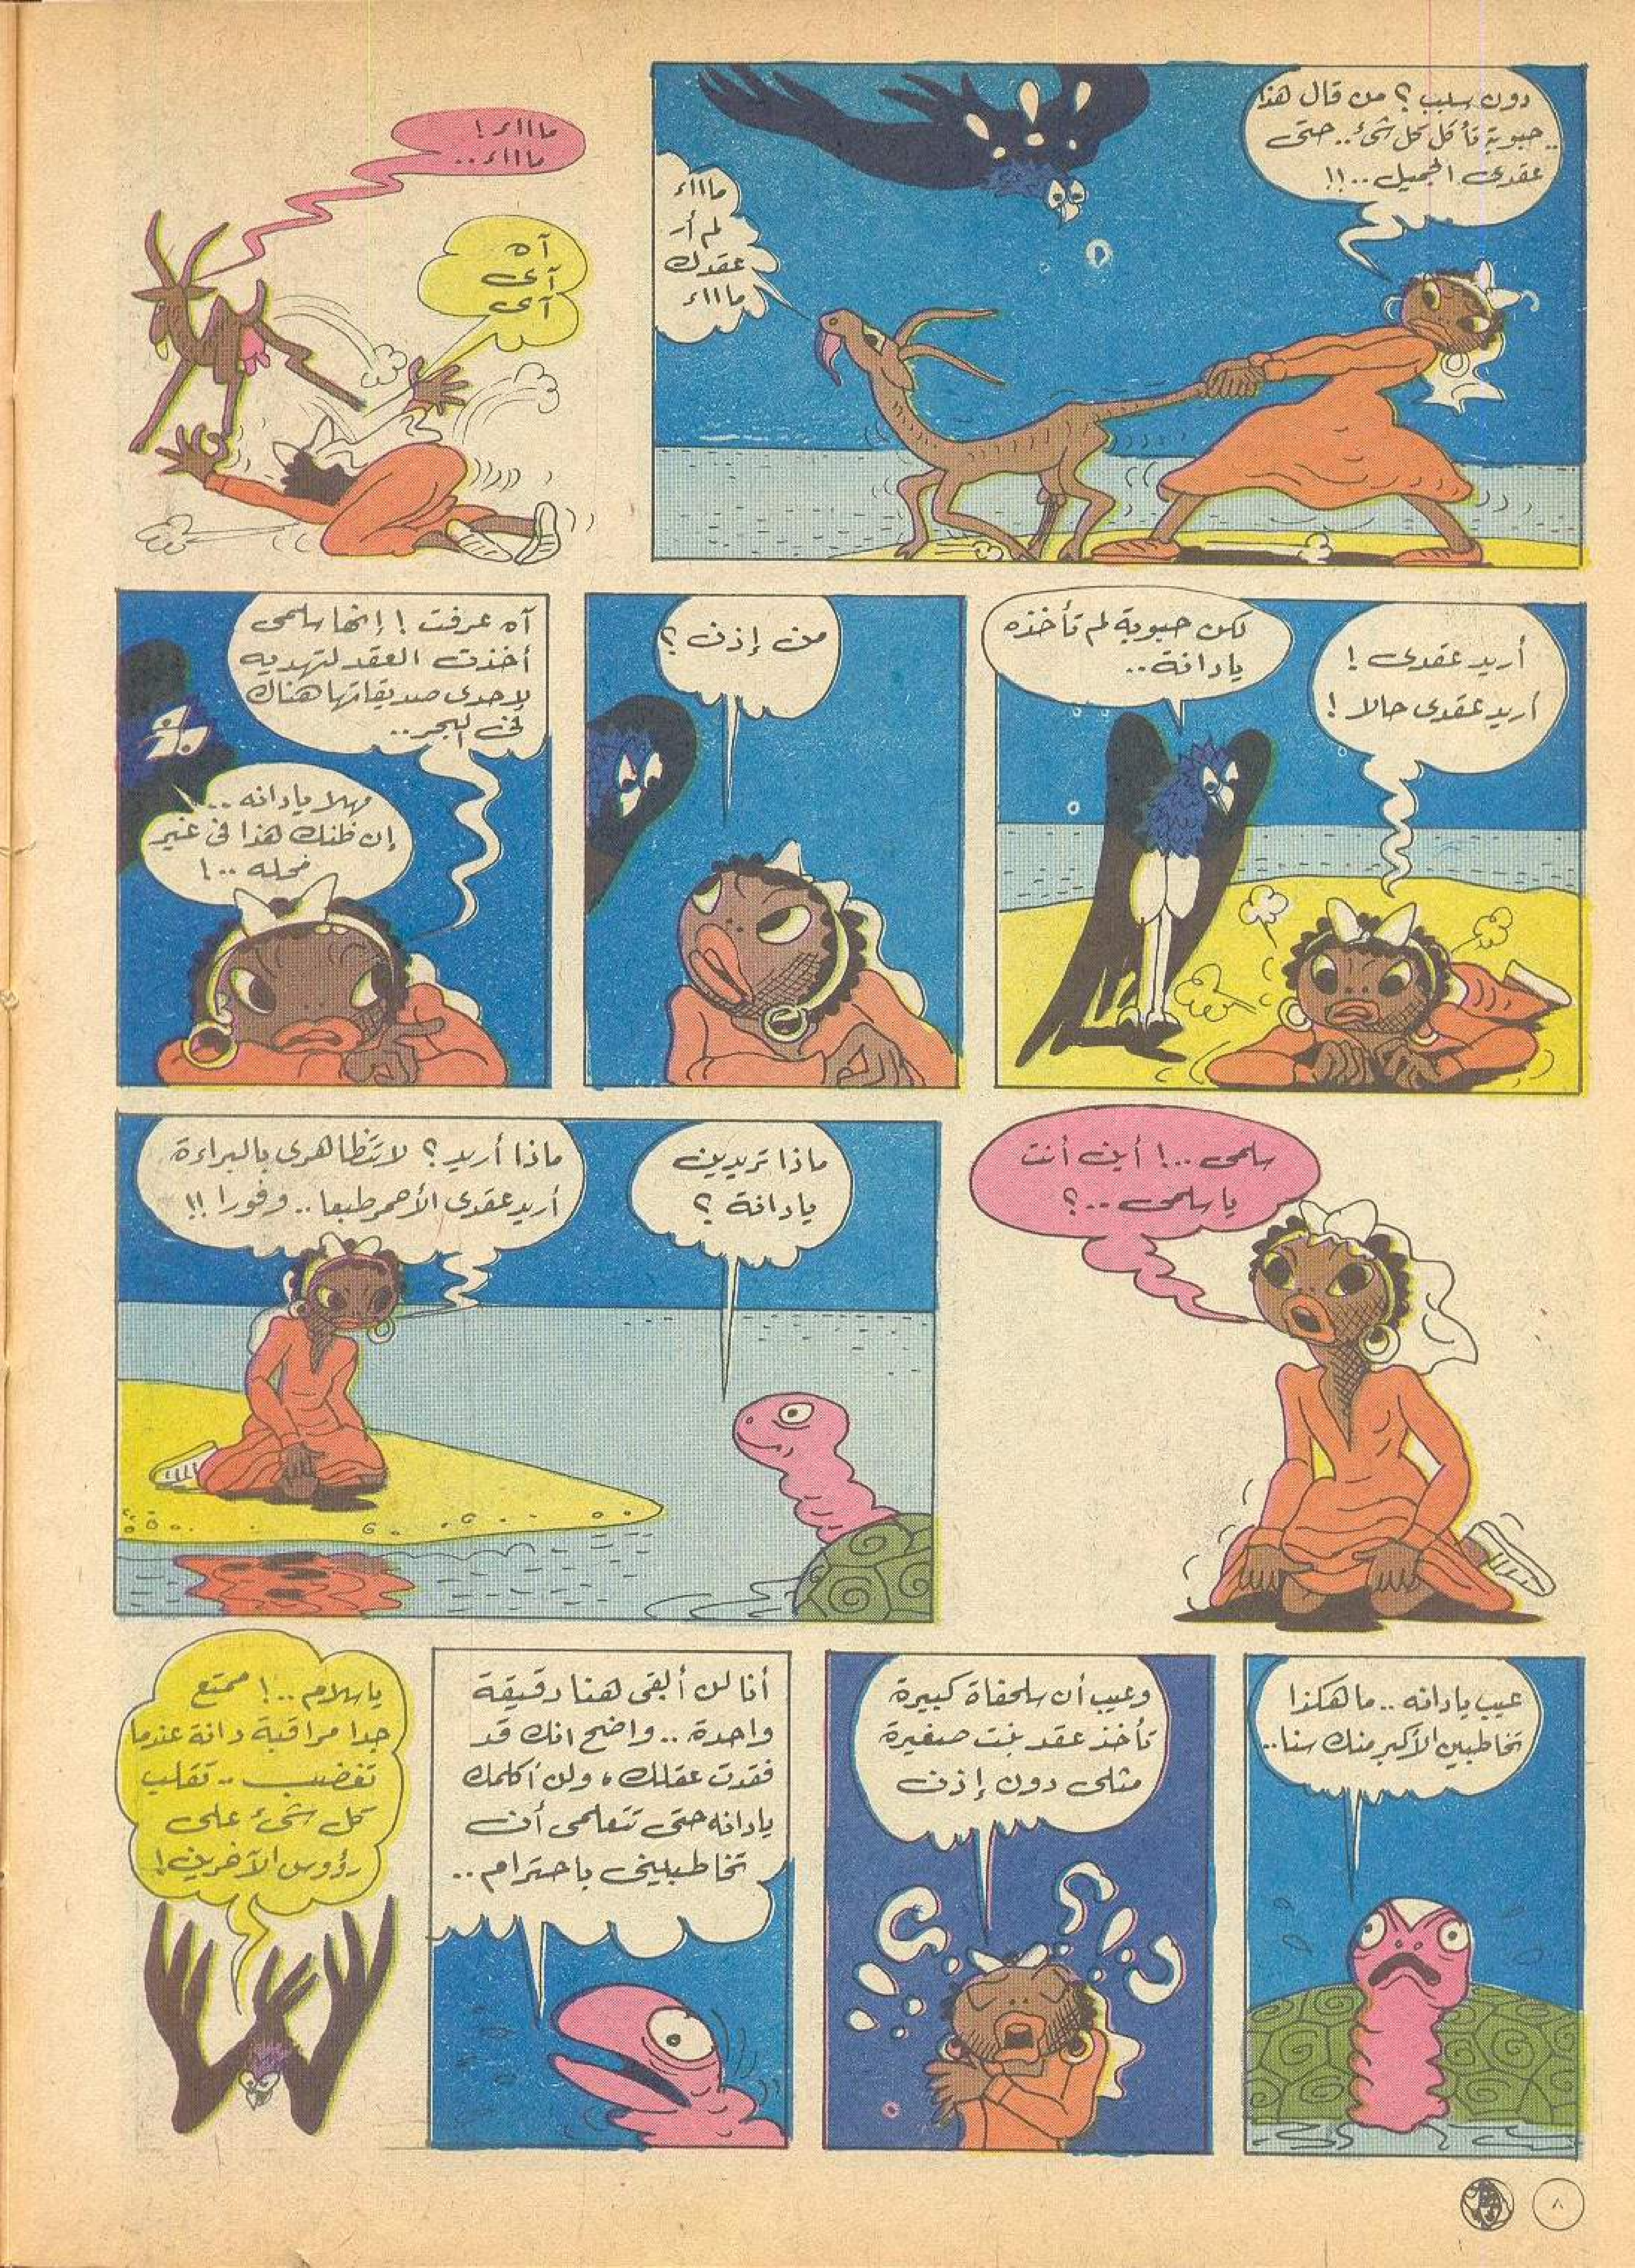 دون سبب؟ من قال هذا
حبوبة تأكل كل شئ.. حتى..
عقدى الجميل..!!
مااااء
لم أر
عقدك
مااااء
مااااء!
مااااء..
آه
آى
آى
أريد عقدى!
أريد عقدى حالا!
لكن حبوبة لم تأخذه
يا دانة..
من إذن؟
آه عرفت! إنها سلمى
أخذت العقد لتهديه
لإحدى صديقاتها هناك
فى البحر..
مهلا يا دانه..!
إن ظنك هذا فى غير
محله..!
سلمى..! أين أنت
يا سلمى..؟
ماذا تريدين
يا دانة؟
ماذا أريد؟ لا تتظاهرى بالبراءة
أريد عقدى الأحمر طبعا.. وفورا!!
عيب يا دانه.. ما هكذا
تخاطبين الأكبر منك سنا..
وعيب أن سلحفاة كبيرة
تأخذ عقد بنت صغيرة
مثلى دون إذن
أنا لن أبقى هنا دقيقة
واحدة.. واضح انك قد
فقدت عقلك، ولن أكلمك
يا دانه حتى تتعلمى أن
تخاطبينى باحترام..
يا سلام..! ممتع
جدا مراقبة دانة عندما
تغضب.. تقلب
كل شئ على
رؤوس الآخرين!
٨